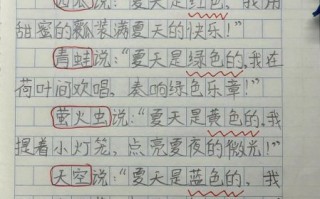 西瓜说:“夏天是红色,我用
甜蜜的瓢装满夏天的快乐!”
青蛙说:“夏天是绿色的,我在
荷叶间欢唱,奏响绿色乐章!”
萤火虫说:“夏天是黄色的,我
提着小灯笼,点亮夏夜的微光!”
天空说:“夏天是蓝色的,我